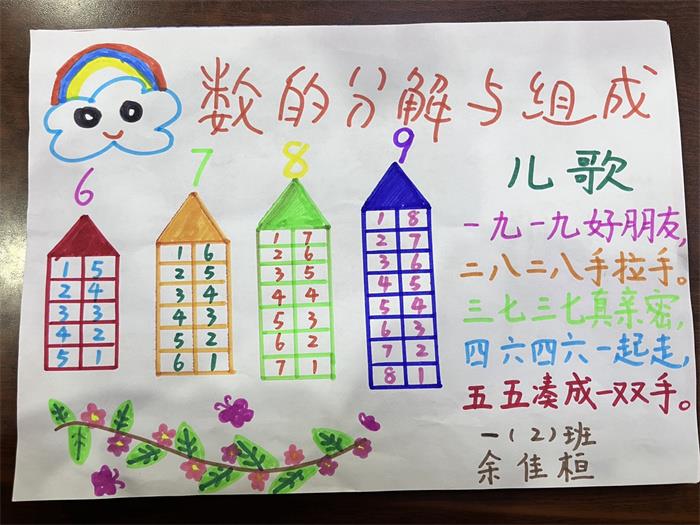 数的分解与组成
6
1 5
2 4
3 3
4 2
5 1
7
1 6
2 5
3 4
4 3
5 2
6 1
8
1 7
2 6
3 5
4 4
5 3
6 2
7 1
9
1 8
2 7
3 6
4 5
5 4
6 3
7 2
8 1
儿歌
一九一九好朋友,
二八二八手拉手。
三七三七真亲密,
四六四六一起走,
五五凑成一双手。
一(2)班
余佳桓